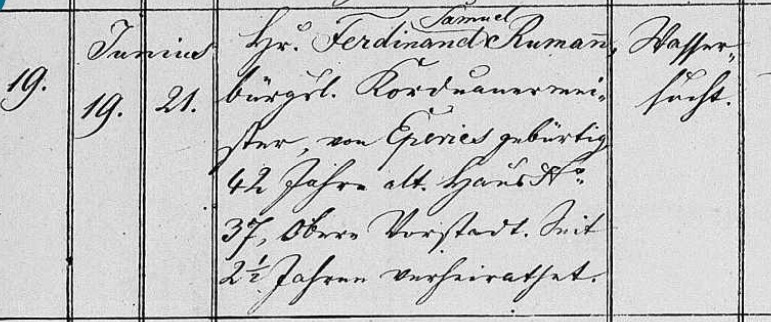 19.
Junius
19. 21.
Samuel
Hr. Ferdinand Rumann,
bürgerl. Korduanermei-
ster, von Eperies gebürtig
42 Jahre alt. Haus No.
37, Obere Vorstadt. Seit
2½ Jahren verheirathet.
Wasser-
sucht.